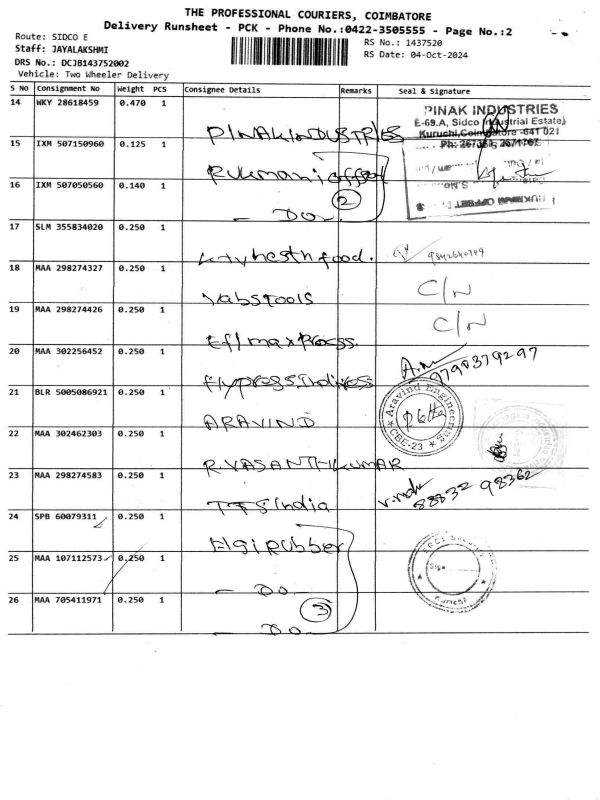 THE PROFESSIONAL COURIERS, COIMBATORE
Delivery Runsheet - PCK - Phone No.:0422-3505555 - Page No.:2
Route: SIDCO E
Staff: JAYALAKSHMI
DRS No.: DCJB143752002
Vehicle: Two Wheeler Delivery
RS No.: 1437520
RS Date: 04-Oct-2024
S No Consignment No Weight PCS Consignee Details Remarks Seal & Signature
14 WKY 28618459 0.470 1 PINAK INDUSTRIES
PINAK INDUSTRIES
E-69.A, Sidco Industrial Estate,
Kuruchi, Coimbatore -641 021
15 IXM 507150960 0.125 1 Rukmani offset
16 IXM 507050560 0.140 1 - Do -
2
17 SLM 355834020 0.250 1 food.
18 MAA 298274327 0.250 1 Vabstools C/N
19 MAA 298274426 0.250 1 C/N
20 MAA 302256452 0.250 1 9798379297
21 BLR 5005086921 0.250 1 ARAVIND
Aravind Engineers
CBE-23
22 MAA 302462303 0.250 1 R.VASANTHKUMAR
23 MAA 298274583 0.250 1 India 88832 98362
24 SPB 60079311 0.250 1 Elgi Rubber
25 MAA 107112573 0.250 1 - Do
26 MAA 705411971 0.250 1 - Do
3
Kurichi